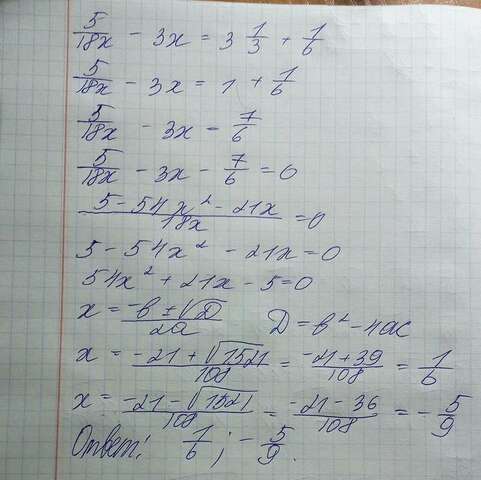 5/18x - 3x = 3 1/3 + 1/6
5/18x - 3x = 1 + 1/6
5/18x - 3x = 7/6
5/18x - 3x - 7/6 = 0
5 - 54x² - 21x / 18x = 0
5 - 54x² - 21x = 0
54x² + 21x - 5 = 0
x = -b ± √D / 2a D = b² - 4ac
x = -21 + √1521 / 108 = -21 + 39 / 108 = 1/6
x = -21 - √1521 / 108 = -21 - 36 / 108 = - 5/9
Ответ: 1/6 ; - 5/9.